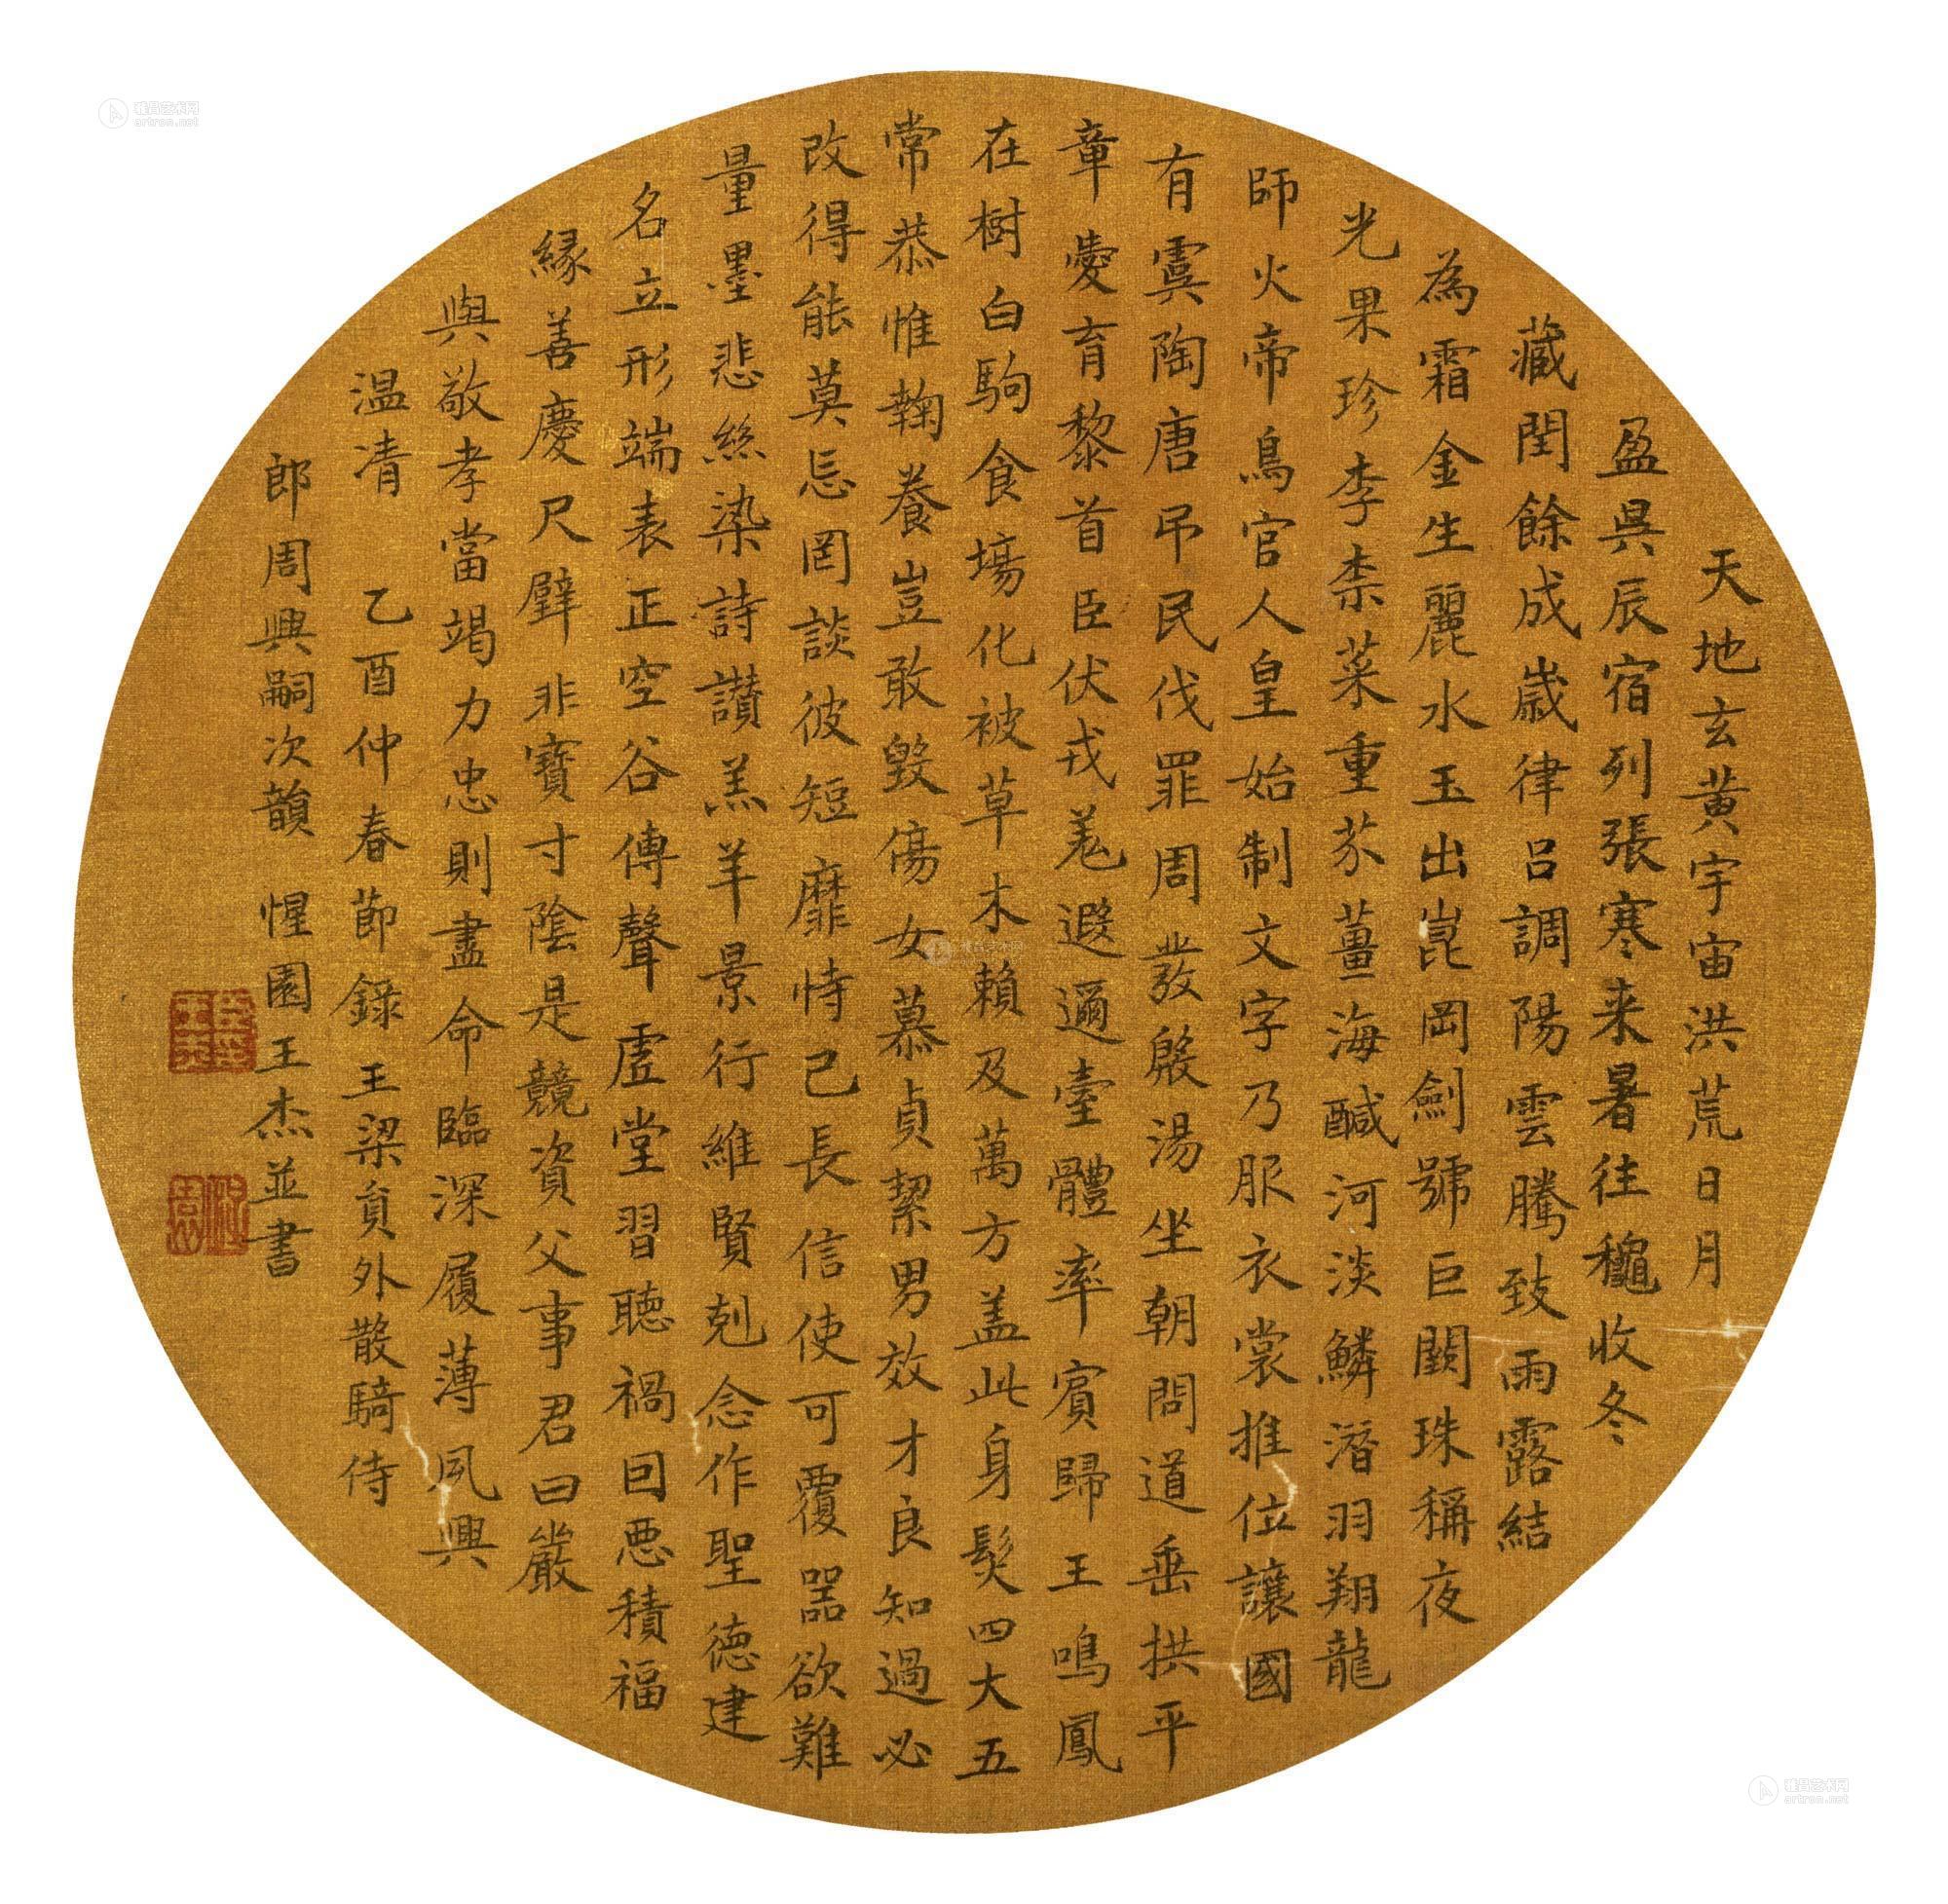 天地玄黃宇宙洪荒日月
盈昃辰宿列張寒来暑往穐收冬
藏閏餘成歲律呂調陽雲騰致雨露結
為霜金生麗水玉出崑岡劍號巨闕珠稱夜
光果珍李柰菜重芥薑海醎河淡鱗潛羽翔龍
師火帝鳥官人皇始制文字乃服衣裳推位讓國
有虞陶唐弔民伐罪周發殷湯坐朝問道垂拱平
章愛育黎首臣伏戎羗遐邇壹體率賓歸王鳴鳳
在樹白駒食場化被草木賴及萬方盖此身髮四大五
常恭惟鞠養豈敢毀傷女慕貞絜男效才良知過必
改得能莫忘罔談彼短靡恃己長信使可覆器欲難
量墨悲絲染詩讚羔羊景行維賢剋念作聖德建
名立形端表正空谷傳聲虛堂習聽禍因惡積福
緣善慶尺璧非寶寸陰是競資父事君曰嚴
與敬孝當竭力忠則盡命臨深履薄夙興
温凊　乙酉仲春節錄王梁員外散騎侍
郎周興嗣次韻　惺園王杰並書
雅昌艺术网
artron.net
雅昌艺术网
雅昌艺术网
artron.net